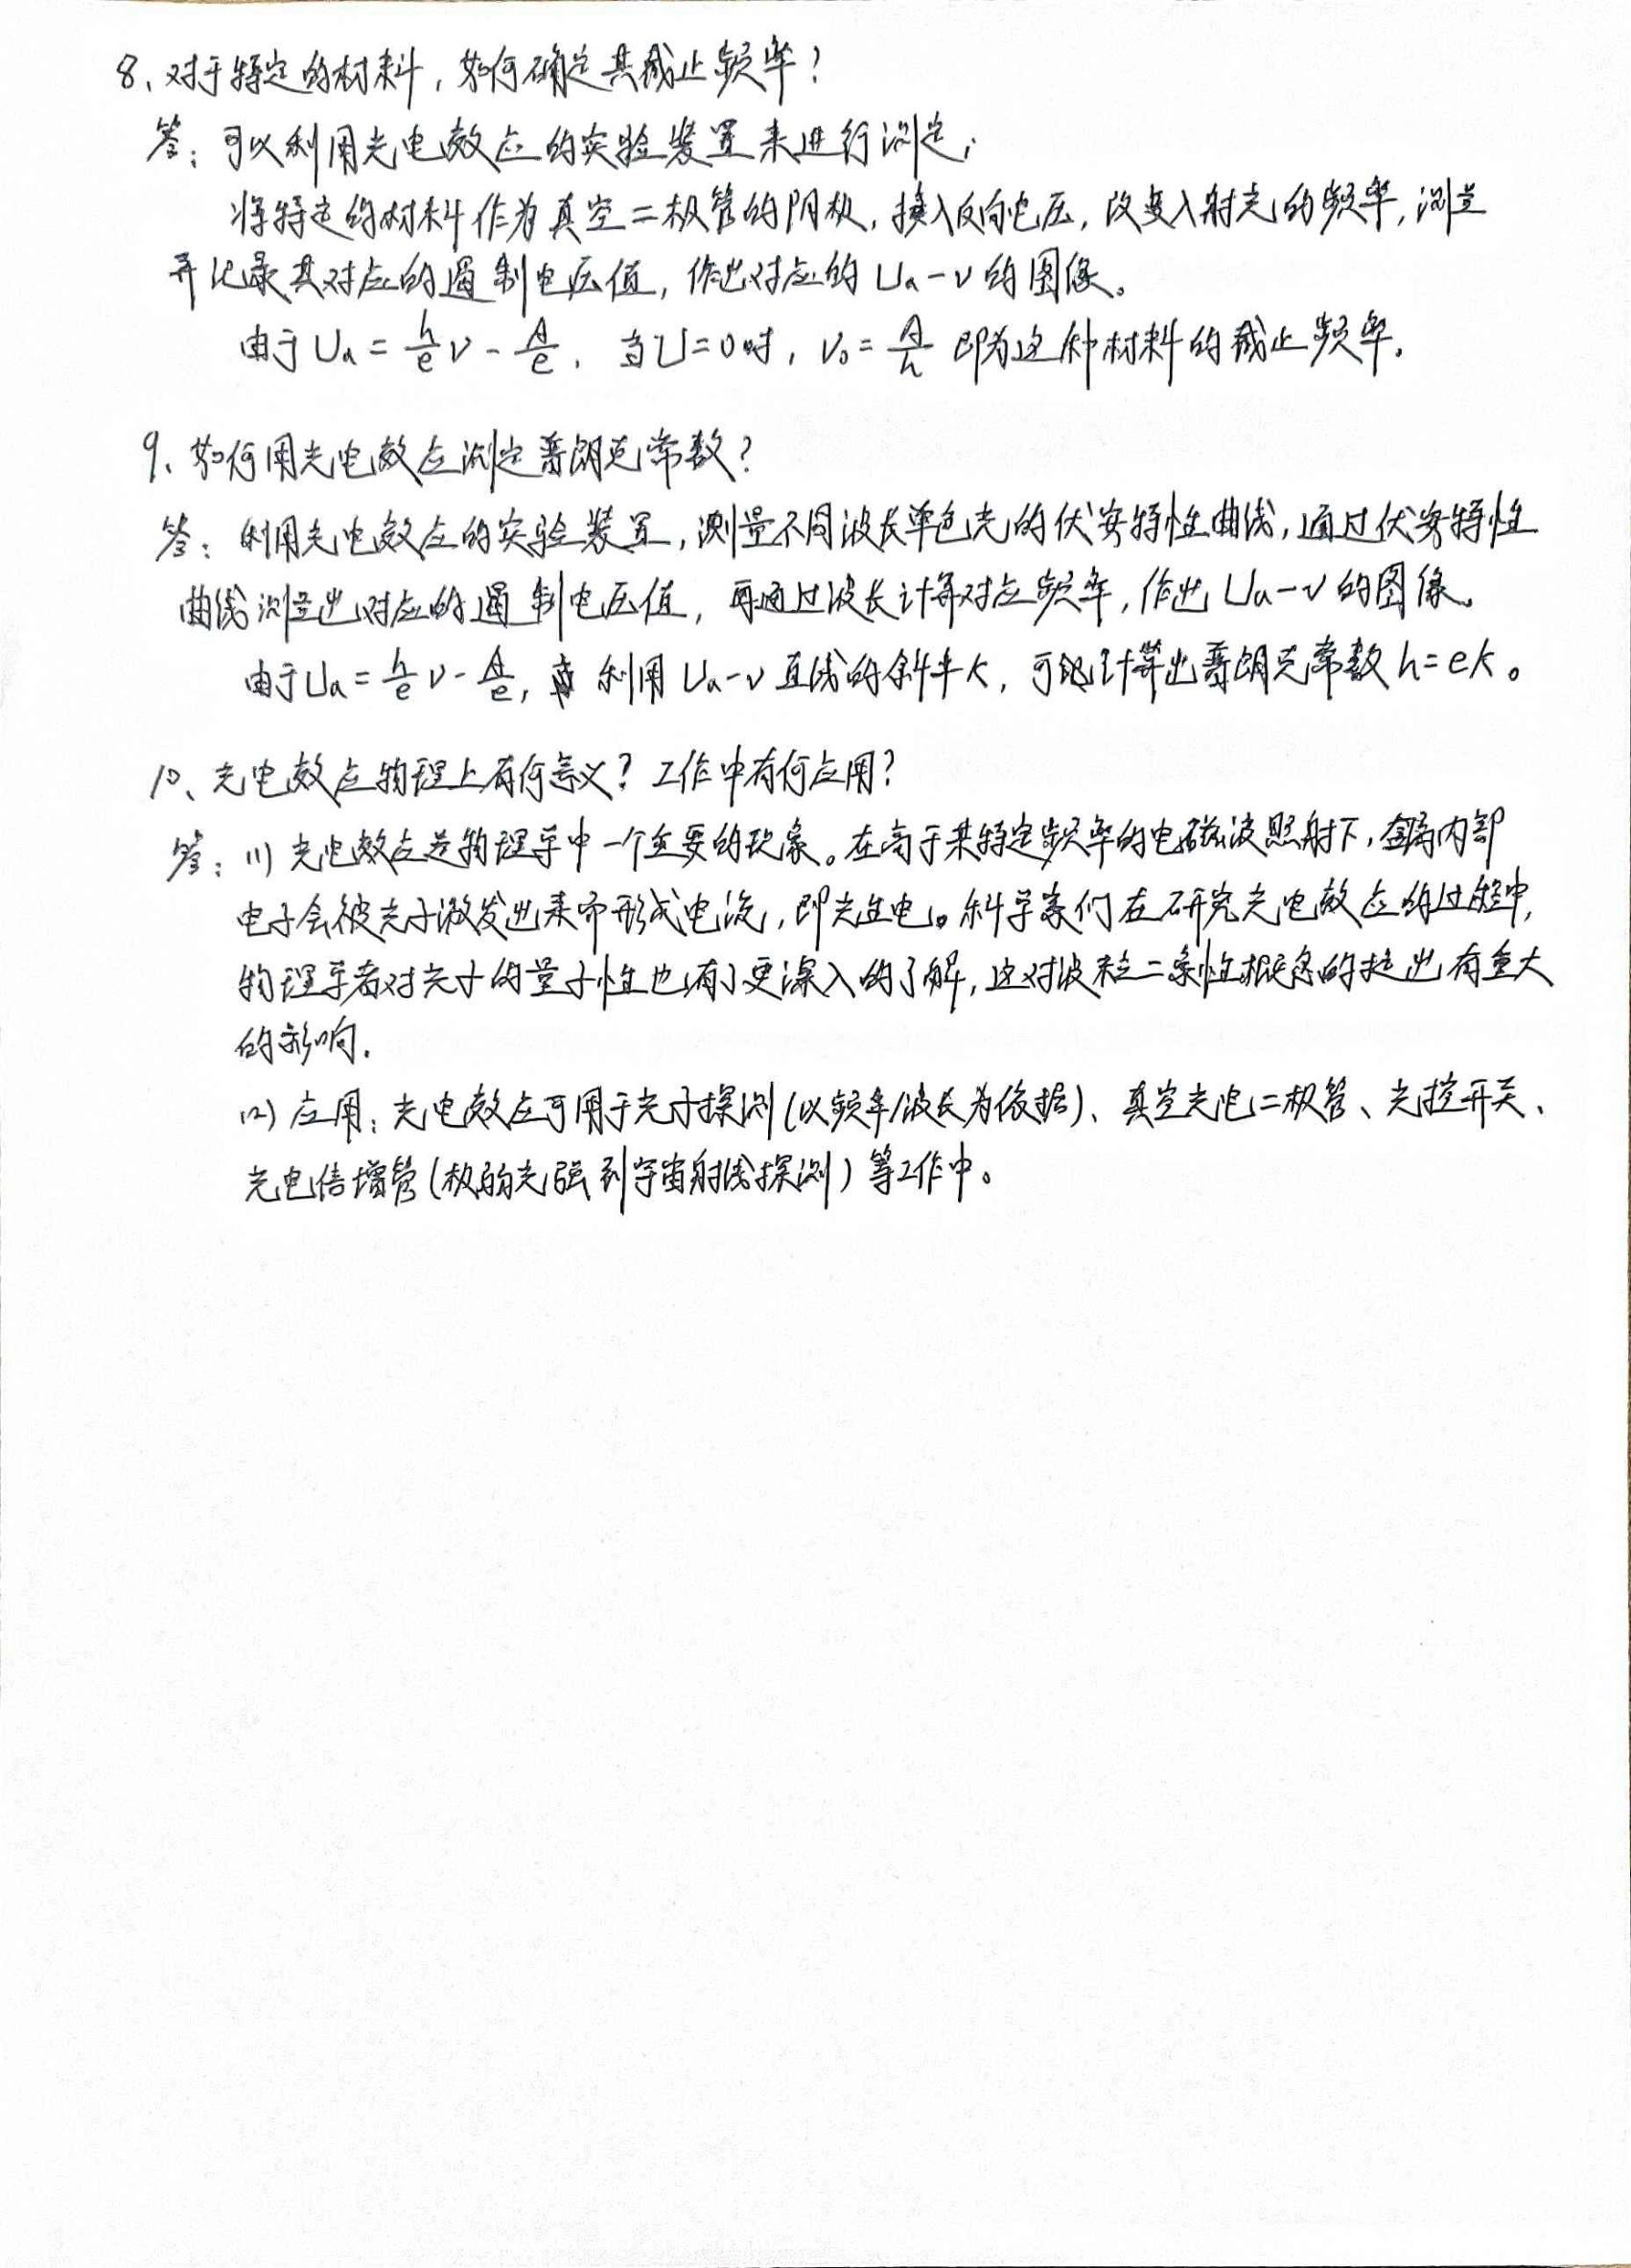 8、对于特定的材料，如何确定其截止频率？
答：可以利用光电效应的实验装置来进行测定；
将特定的材料作为真空二极管的阴极，接入反向电压，改变入射光的频率，测量
并记录其对应的遏制电压值，作出对应的 Ua-ν 的图像。
由于 Ua = h/e ν - A/e，当U=0时，ν₀ = A/h 即为这种材料的截止频率。
9、如何用光电效应测定普朗克常数？
答：利用光电效应的实验装置，测量不同波长单色光的伏安特性曲线，通过伏安特性
曲线测量出对应的遏制电压值，再通过波长计算对应频率，作出 Ua-ν 的图像。
由于 Ua = h/e ν - A/e，利用 Ua-ν 直线的斜率 K，可以计算出普朗克常数 h=eK。
10、光电效应物理上有何意义？工作中有何应用？
答：(1) 光电效应是物理学中一个重要的现象。在高于某特定频率的电磁波照射下，金属内部
电子会被光子激发出来而形成电流，即光生电。科学家们在研究光电效应的过程中，
物理学者对光子的量子性也有了更深入的了解，这对波粒二象性概念的提出有重大
的影响.
(2) 应用：光电效应可用于光子探测(以频率/波长为依据)、真空光电二极管、光控开关、
光电倍增管(极弱光强到宇宙射线探测)等工作中。